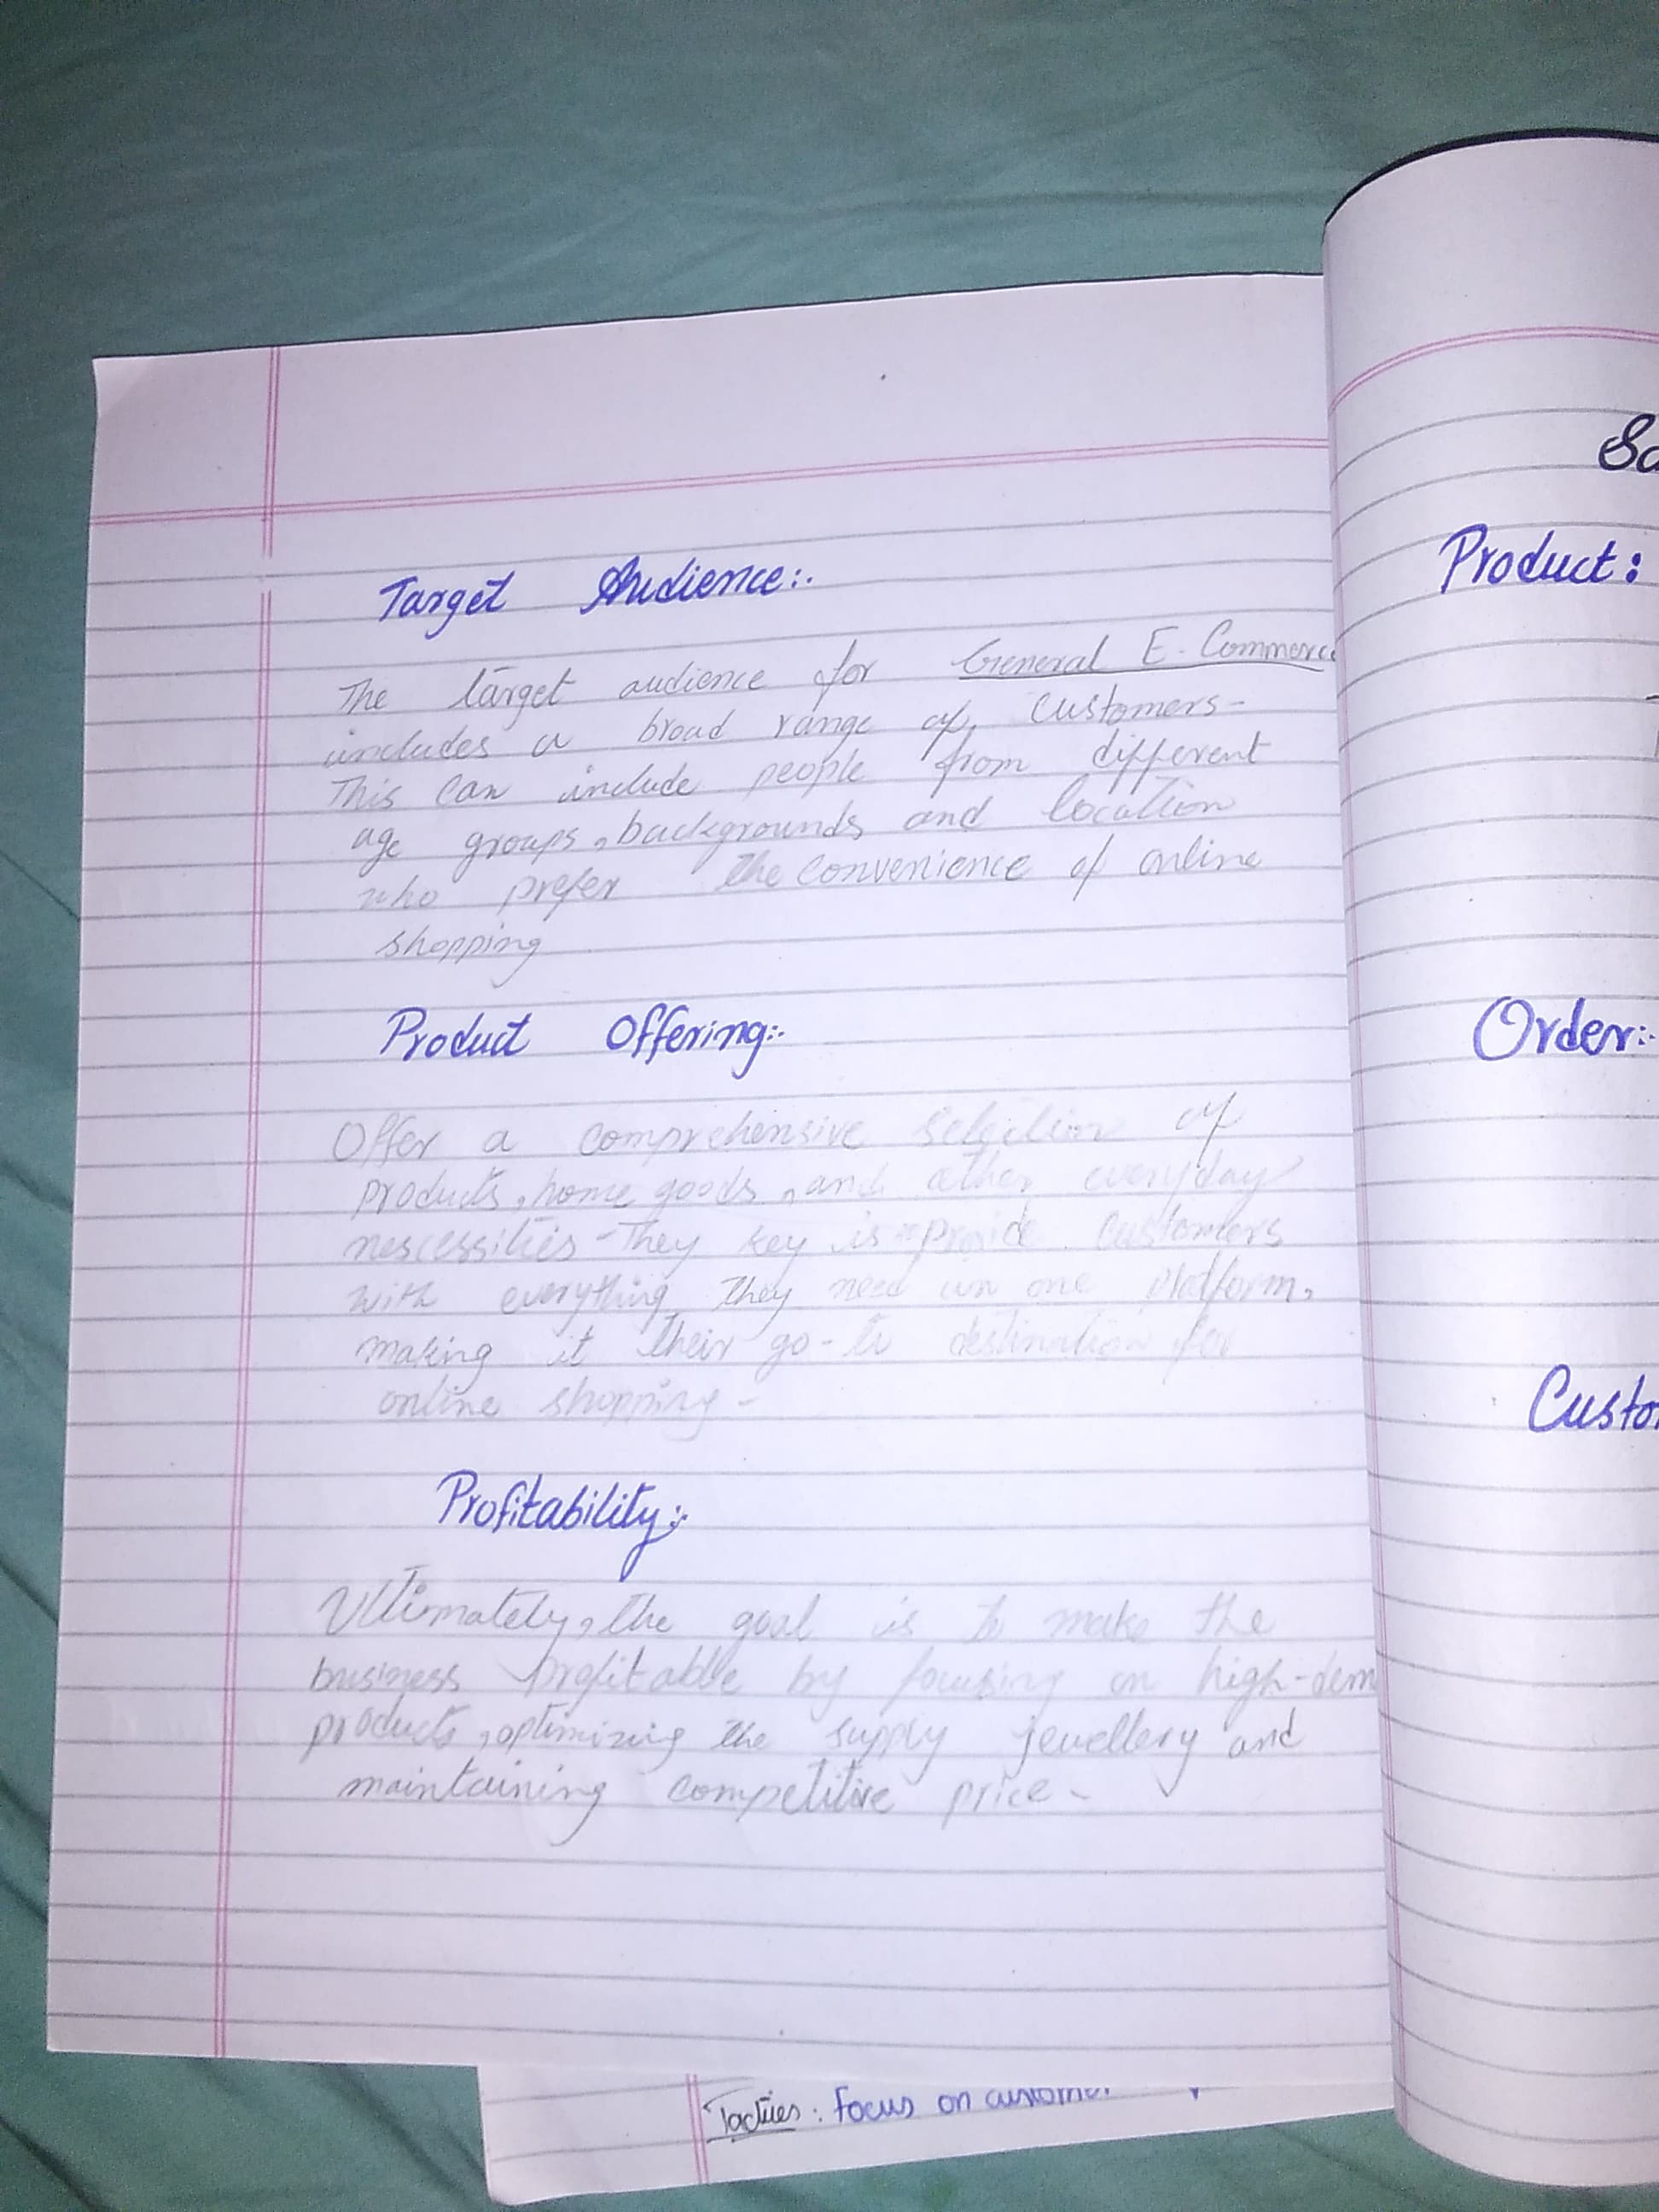 Target Audience:.
The target audience for General E-Commerce
includes a broad range of customers-
This can include people from different
age groups, backgrounds and location
who prefer the convenience of online
shopping
Product Offering:.
Offer a comprehensive selection of
products, home goods, and other everyday
nescessities - They key is provide customers
with everything they need in one platform,
making it their go-to destination for
online shopping-
Profitability:.
Ultimately, the goal is to make the
business profitable by focusing on high-dem
products, optimizing the supply jewellery and
maintaining competitive price-
Tactics: Focus on customer
Sa
Product:
Order:.
Custo